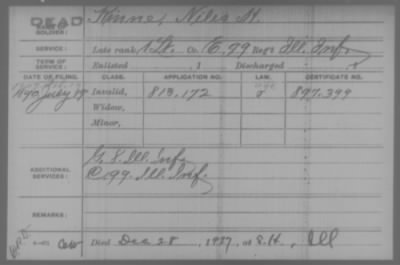 DEAD
NAME OF SOLDIER: Kinne, Niles H.
SERVICE: Late rank, 1 Lt. Co. E, 79 Reg't Ill. Inf.
TERM OF SERVICE: Enlisted , 1 Discharged
DATE OF FILING. CLASS. APPLICATION NO. LAW. CERTIFICATE NO.
1890 July 17 Invalid, 813,172 897,399
Widow,
Minor,
ADDITIONAL SERVICES: G. 8. Ill. Inf.
C 99. Ill. Inf.
REMARKS:
Died Dec 28, 1927, at S.H., Ill